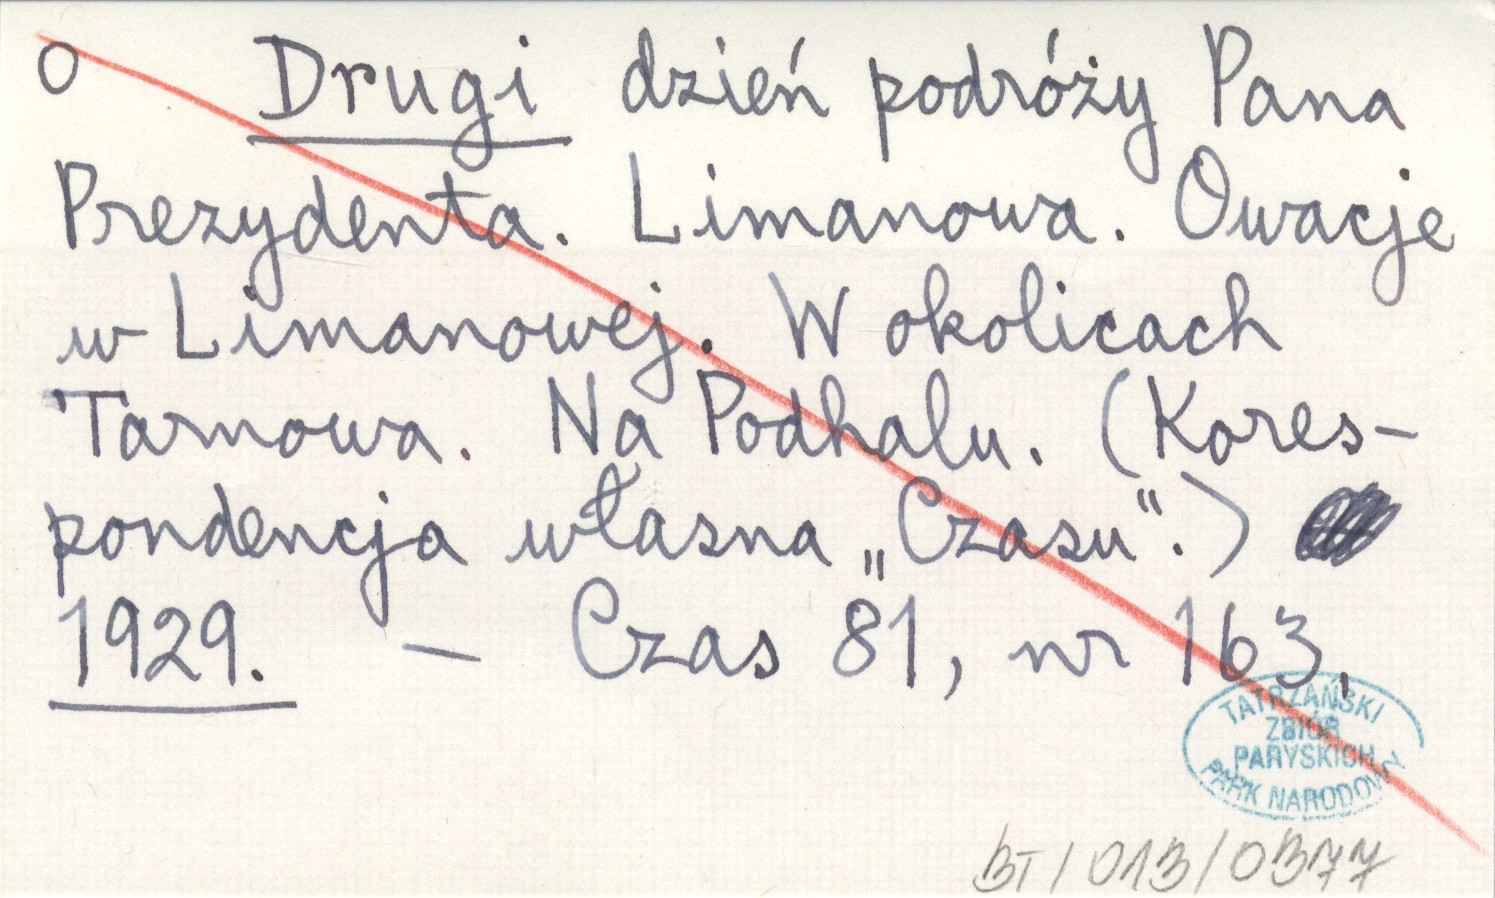 o Drugi dzień podróży Pana
Prezydenta. Limanowa. Owacje
w Limanowej. W okolicach
Tarnowa. Na Podhalu. (Kores-
pondencja własna „Czasu".)
1929. — Czas 81, nr 163.
TATRZAŃSKI
ZBIÓR
PARYSKICH
PARK NARODOWY
BT/013/0377